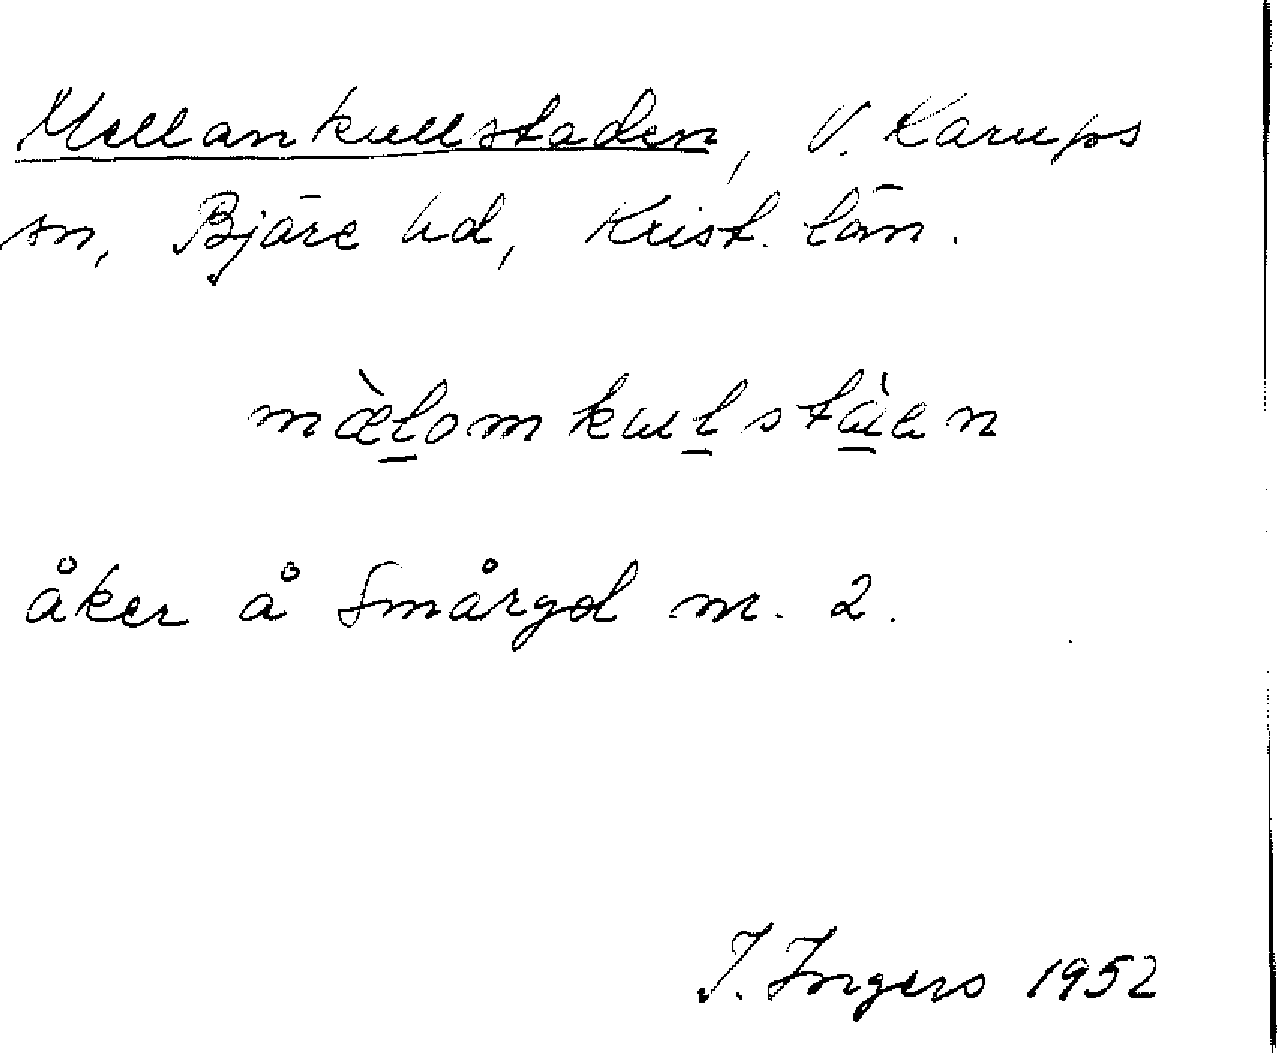 Mellankullstaden, V. Karups
sn, Bjäre hd, Krist. län.
mæ̀l̠omkul̠stà̠en
åker å Smårgd m. 2.
I. Ingers 1952